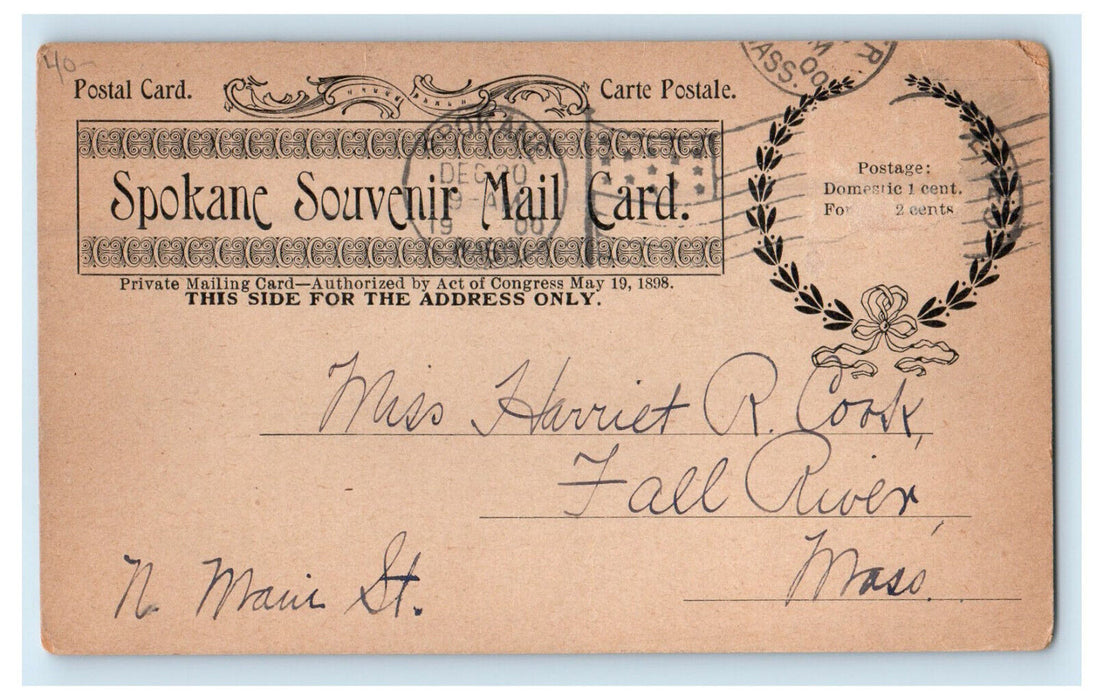 40-
Postal Card. Carte Postale.
Spokane Souvenir Mail Card.
Private Mailing Card—Authorized by Act of Congress May 19, 1898.
THIS SIDE FOR THE ADDRESS ONLY.
SPOKANE
DEC 20
9-AM
19 00
WASH.
R
M
00
MASS.
Postage:
Domestic 1 cent.
For 2 cents
Miss Harriet R. Cook,
Fall River,
Mass.
N. Main St.